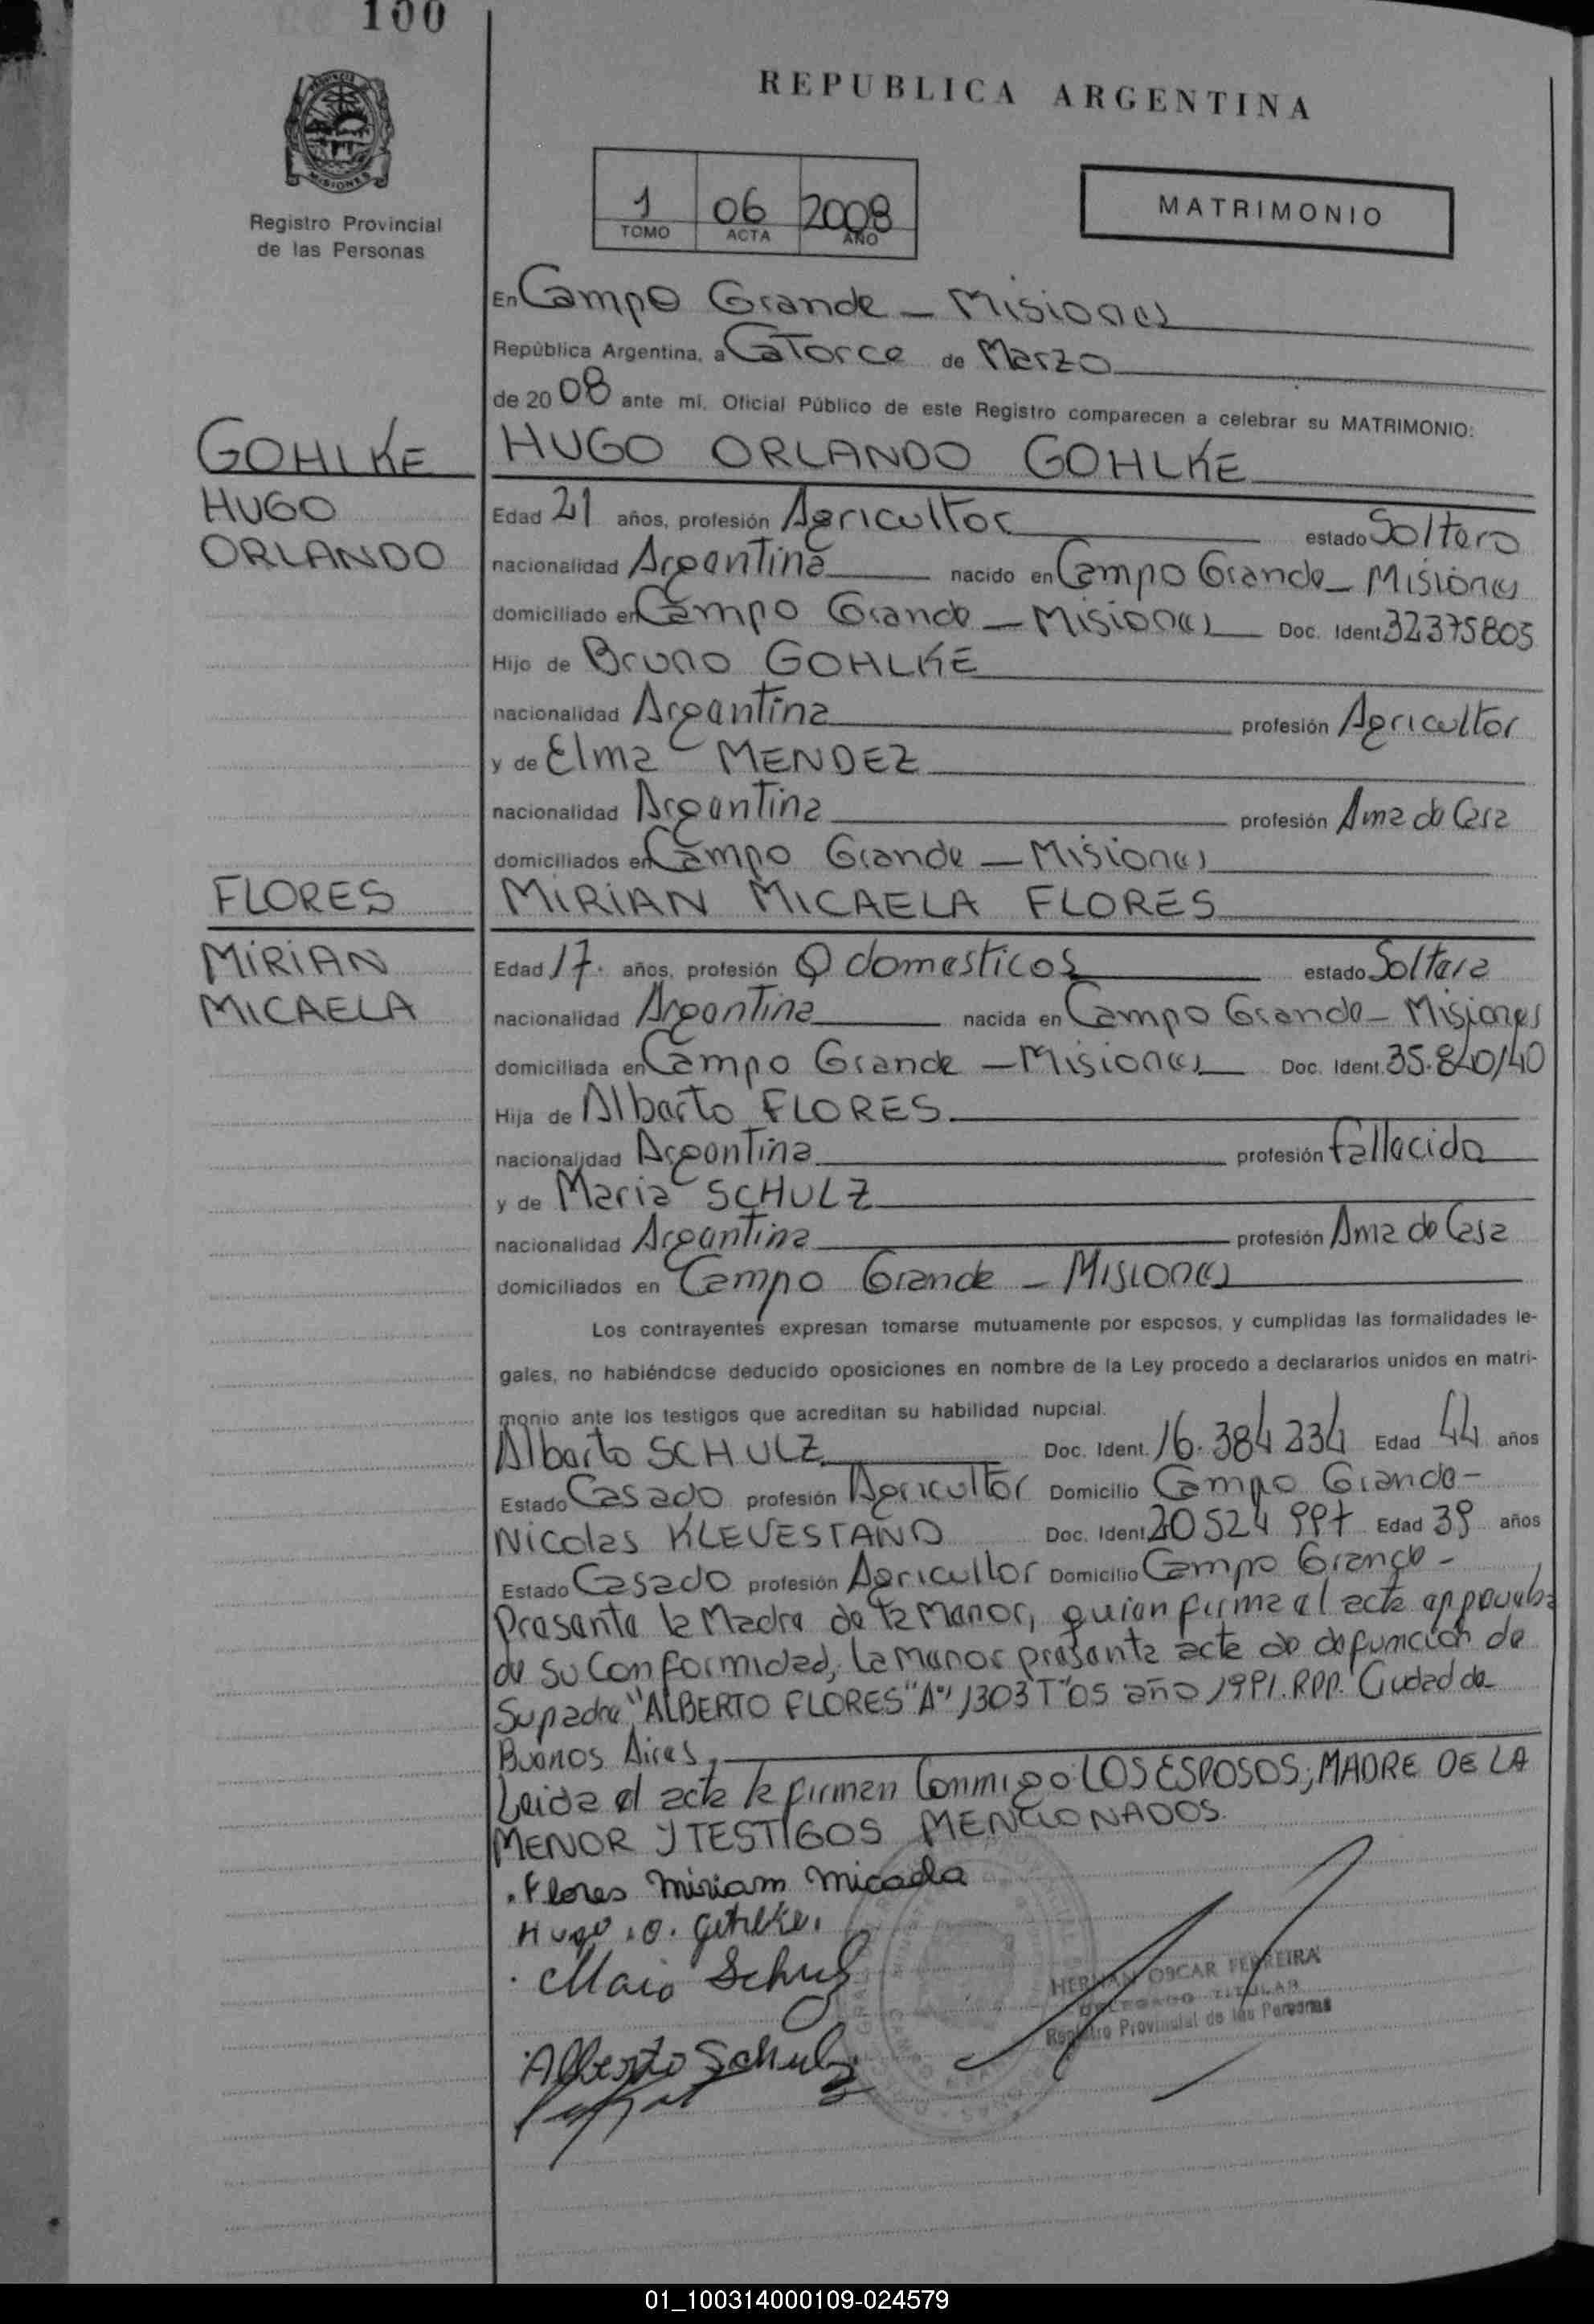 100
REPUBLICA ARGENTINA
MISIONES
Registro Provincial
de las Personas
1 06 2008
TOMO ACTA AÑO
MATRIMONIO
En Campo Grande - Misiones
República Argentina, a Catorce de Marzo
de 2008 ante mí, Oficial Público de este Registro comparecen a celebrar su MATRIMONIO:
GOHLKE HUGO ORLANDO GOHLKE
HUGO Edad 21 años, profesión Agricultor estado Soltero
ORLANDO nacionalidad Argentina nacido en Campo Grande - Misiones
domiciliado en Campo Grande - Misiones Doc. Ident. 32375805
Hijo de Bruno GOHLKE
nacionalidad Argentina profesión Agricultor
y de Elma MENDEZ
nacionalidad Argentina profesión Ama de Casa
domiciliados en Campo Grande - Misiones
FLORES MIRIAN MICAELA FLORES
MIRIAN Edad 17. años, profesión Q domesticos estado Soltera
MICAELA nacionalidad Argentina nacida en Campo Grande - Misiones
domiciliada en Campo Grande - Misiones Doc. Ident. 35.840140
Hija de Alberto FLORES
nacionalidad Argentina profesión fallecido
y de Maria SCHULZ
nacionalidad Argentina profesión Ama de Casa
domiciliados en Campo Grande - Misiones
Los contrayentes expresan tomarse mutuamente por esposos, y cumplidas las formalidades le-
gales, no habiéndose deducido oposiciones en nombre de la Ley procedo a declararlos unidos en matri-
monio ante los testigos que acreditan su habilidad nupcial.
Alberto SCHULZ Doc. Ident. 16.384234 Edad 44 años
Estado Casado profesión Agricultor Domicilio Campo Grande -
Nicolas KLEVESTAÑO Doc. Ident. 20524997 Edad 39 años
Estado Casado profesión Agricultor Domicilio Campo Grande -
Presente la Madre de la Menor, quien firma el acta en prueba
de su Conformidad, la menor presenta acta de defunción de
Su padre "ALBERTO FLORES" A° 1303 T° 05 año 1991. RPP. Ciudad de
Buenos Aires,
Leida el acta la firman Conmigo LOS ESPOSOS, MADRE DE LA
MENOR Y TESTIGOS MENCIONADOS.
Flores Miriam Micaela
Hugo .O. Gohlke.
Maria Schulz
Alberto Schulz
HERNAN OSCAR FERREIRA
DELEGADO TITULAR
Registro Provincial de las Personas
01_100314000109-024579